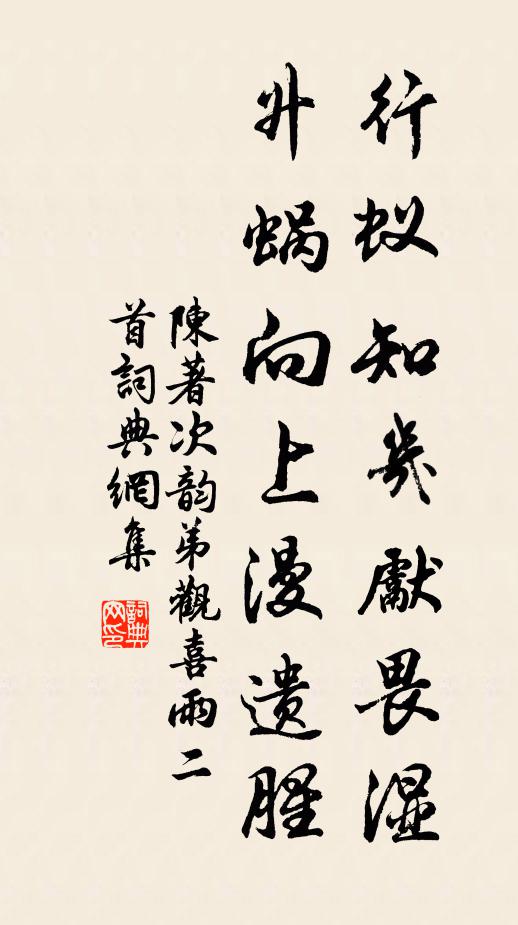 行蚁知几獻畏湿
升蜗向上漫遗腥
陳著次韵弟觀喜雨二
首詞典網集
詞典
网印